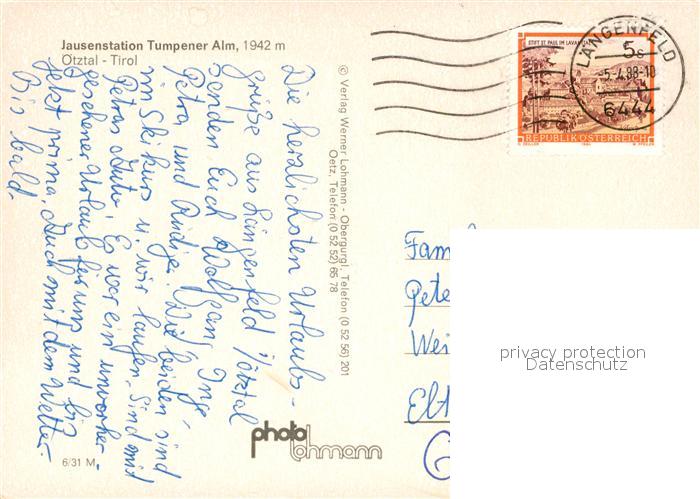 Jausenstation Tumpener Alm, 1942 m
Ötztal - Tirol
Die herzlichsten Urlaubs-
grüße aus Längenfeld /Ötztal
senden Euch Wolfgang, Inge,
Petra und Rüdiger. Die beiden sind
im Skikurs u. wir laufen. Sind mit
Petras Auto. Es war ein unvorher-
gesehener Urlaub für uns und bis
jetzt prima, auch mit dem Wetter.
Bis bald.
© Verlag Werner Lohmann - Obergurgl, Telefon (0 52 56) 201
Oetz, Telefon (0 52 52) 65 78
photo
lohmann
6/31 M
STIFT ST. PAUL IM LAVANTTAL
5s
REPUBLIK ÖSTERREICH
LÄNGENFELD
-5.4.88-10
6444
Fam
Pete
Wei
Elt
privacy protection
Datenschutz